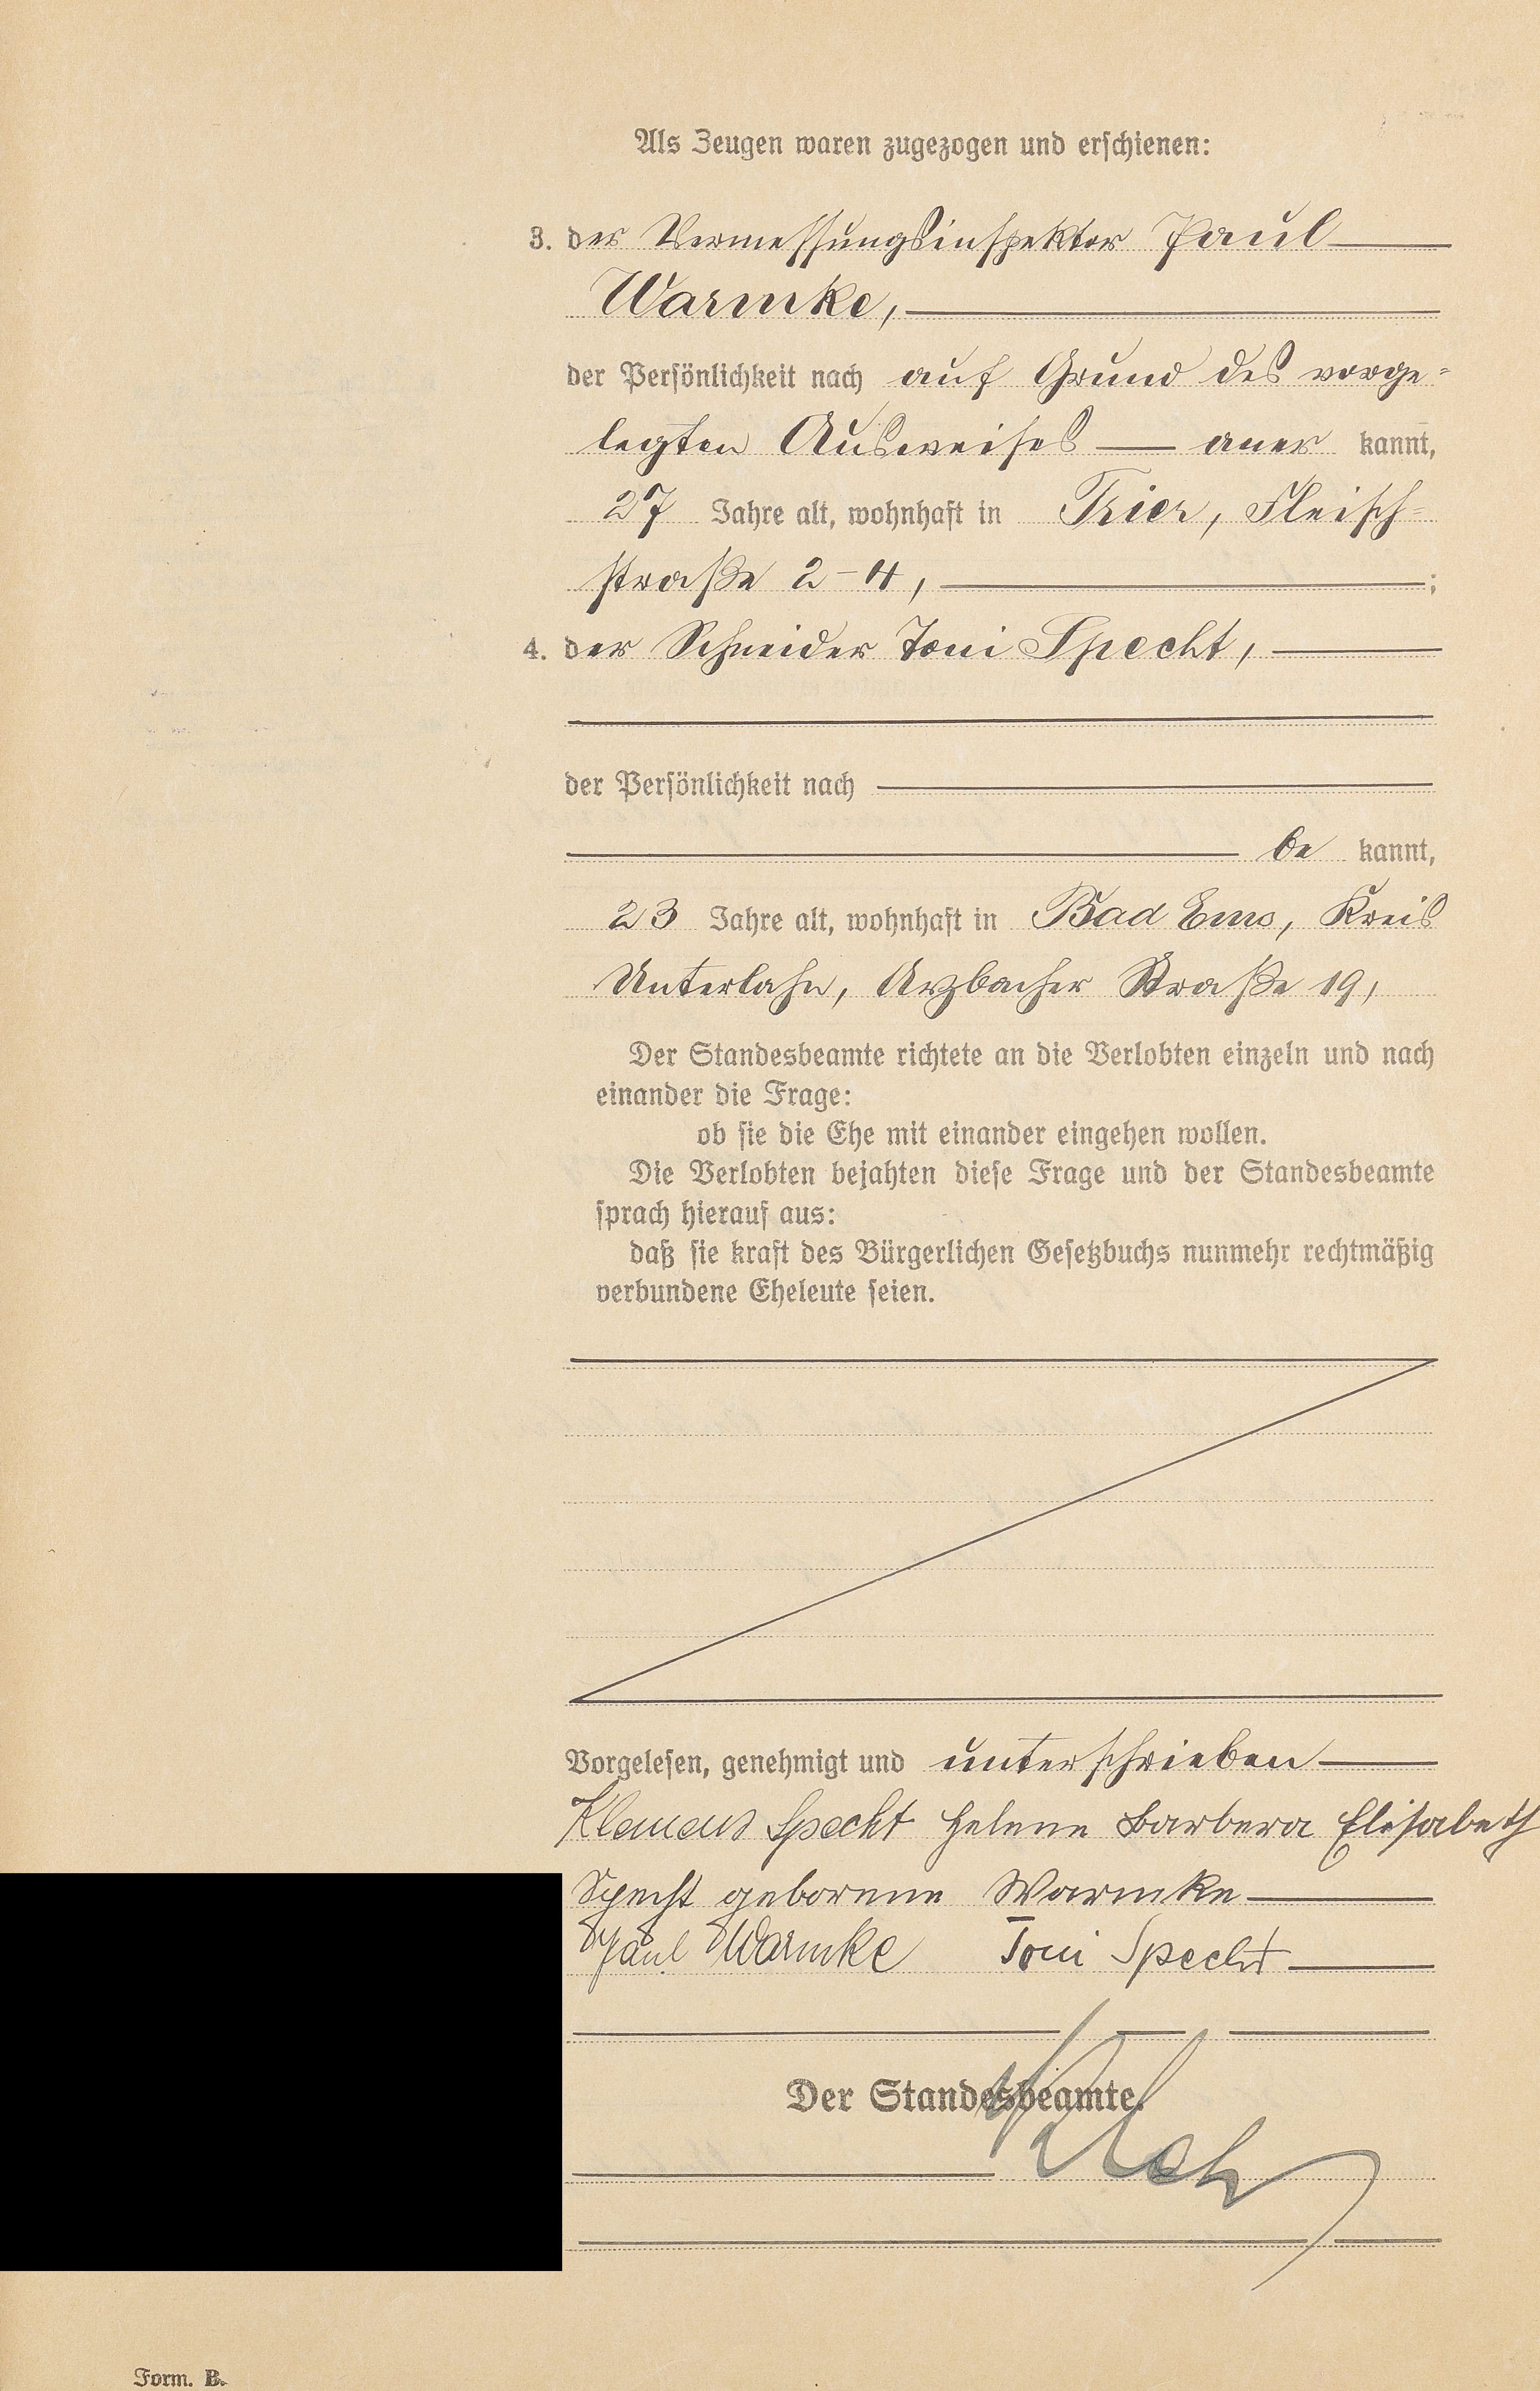 Als Zeugen waren zugezogen und erschienen:
3. der Vermessungsinspektor Paul
Warmke,
der Persönlichkeit nach auf Grund des vorge=
legten Ausweises — aner kannt,
27 Jahre alt, wohnhaft in Trier, Fleisch=
straße 2-4, ;
4. der Schneider Toni Specht,
der Persönlichkeit nach
be kannt,
23 Jahre alt, wohnhaft in Bad Ems, Kreis
Unterlahn, Arzbacher Straße 19,
Der Standesbeamte richtete an die Verlobten einzeln und nach
einander die Frage:
ob sie die Ehe mit einander eingehen wollen.
Die Verlobten bejahten diese Frage und der Standesbeamte
sprach hierauf aus:
daß sie kraft des Bürgerlichen Gesetzbuchs nunmehr rechtmäßig
verbundene Eheleute seien.
Vorgelesen, genehmigt und unterschrieben
Klemens Specht Helene Barbera Elisabeth
Specht geborene Warmke
Paul Warmke Toni Specht
Der Standesbeamte.
Form. B.